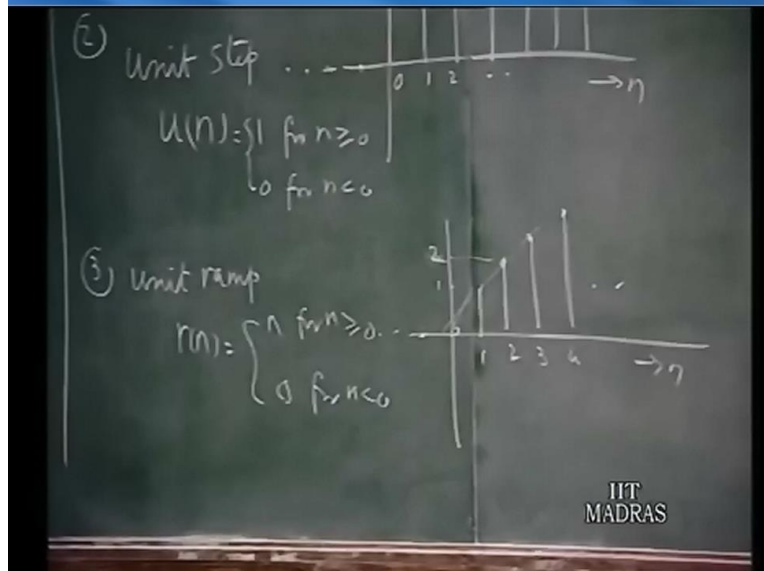 ② unit step ....
0 1 2 .. →n
u(n)={1 for n≥0
0 for n<0
③ unit ramp
2
1
r(n)={n for n≥0...
0
..
1 2 3 4 →n
0 for n<0
IIT
MADRAS